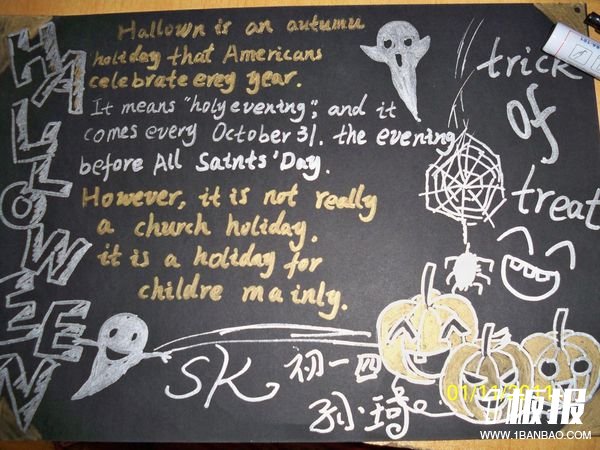 HALLOWEEN
Hallown is an autumu
holiday that Americans
celebrate erey year.
It means "holy evening", and it
comes every October 31. the evening
before All Saints' Day.
However, it is not really
a church holiday,
it is a holiday for
childre mainly.
trick
of
treat
SK 初一四
孙琦
01/11/2011
板报
WWW.1BANBAO.COM